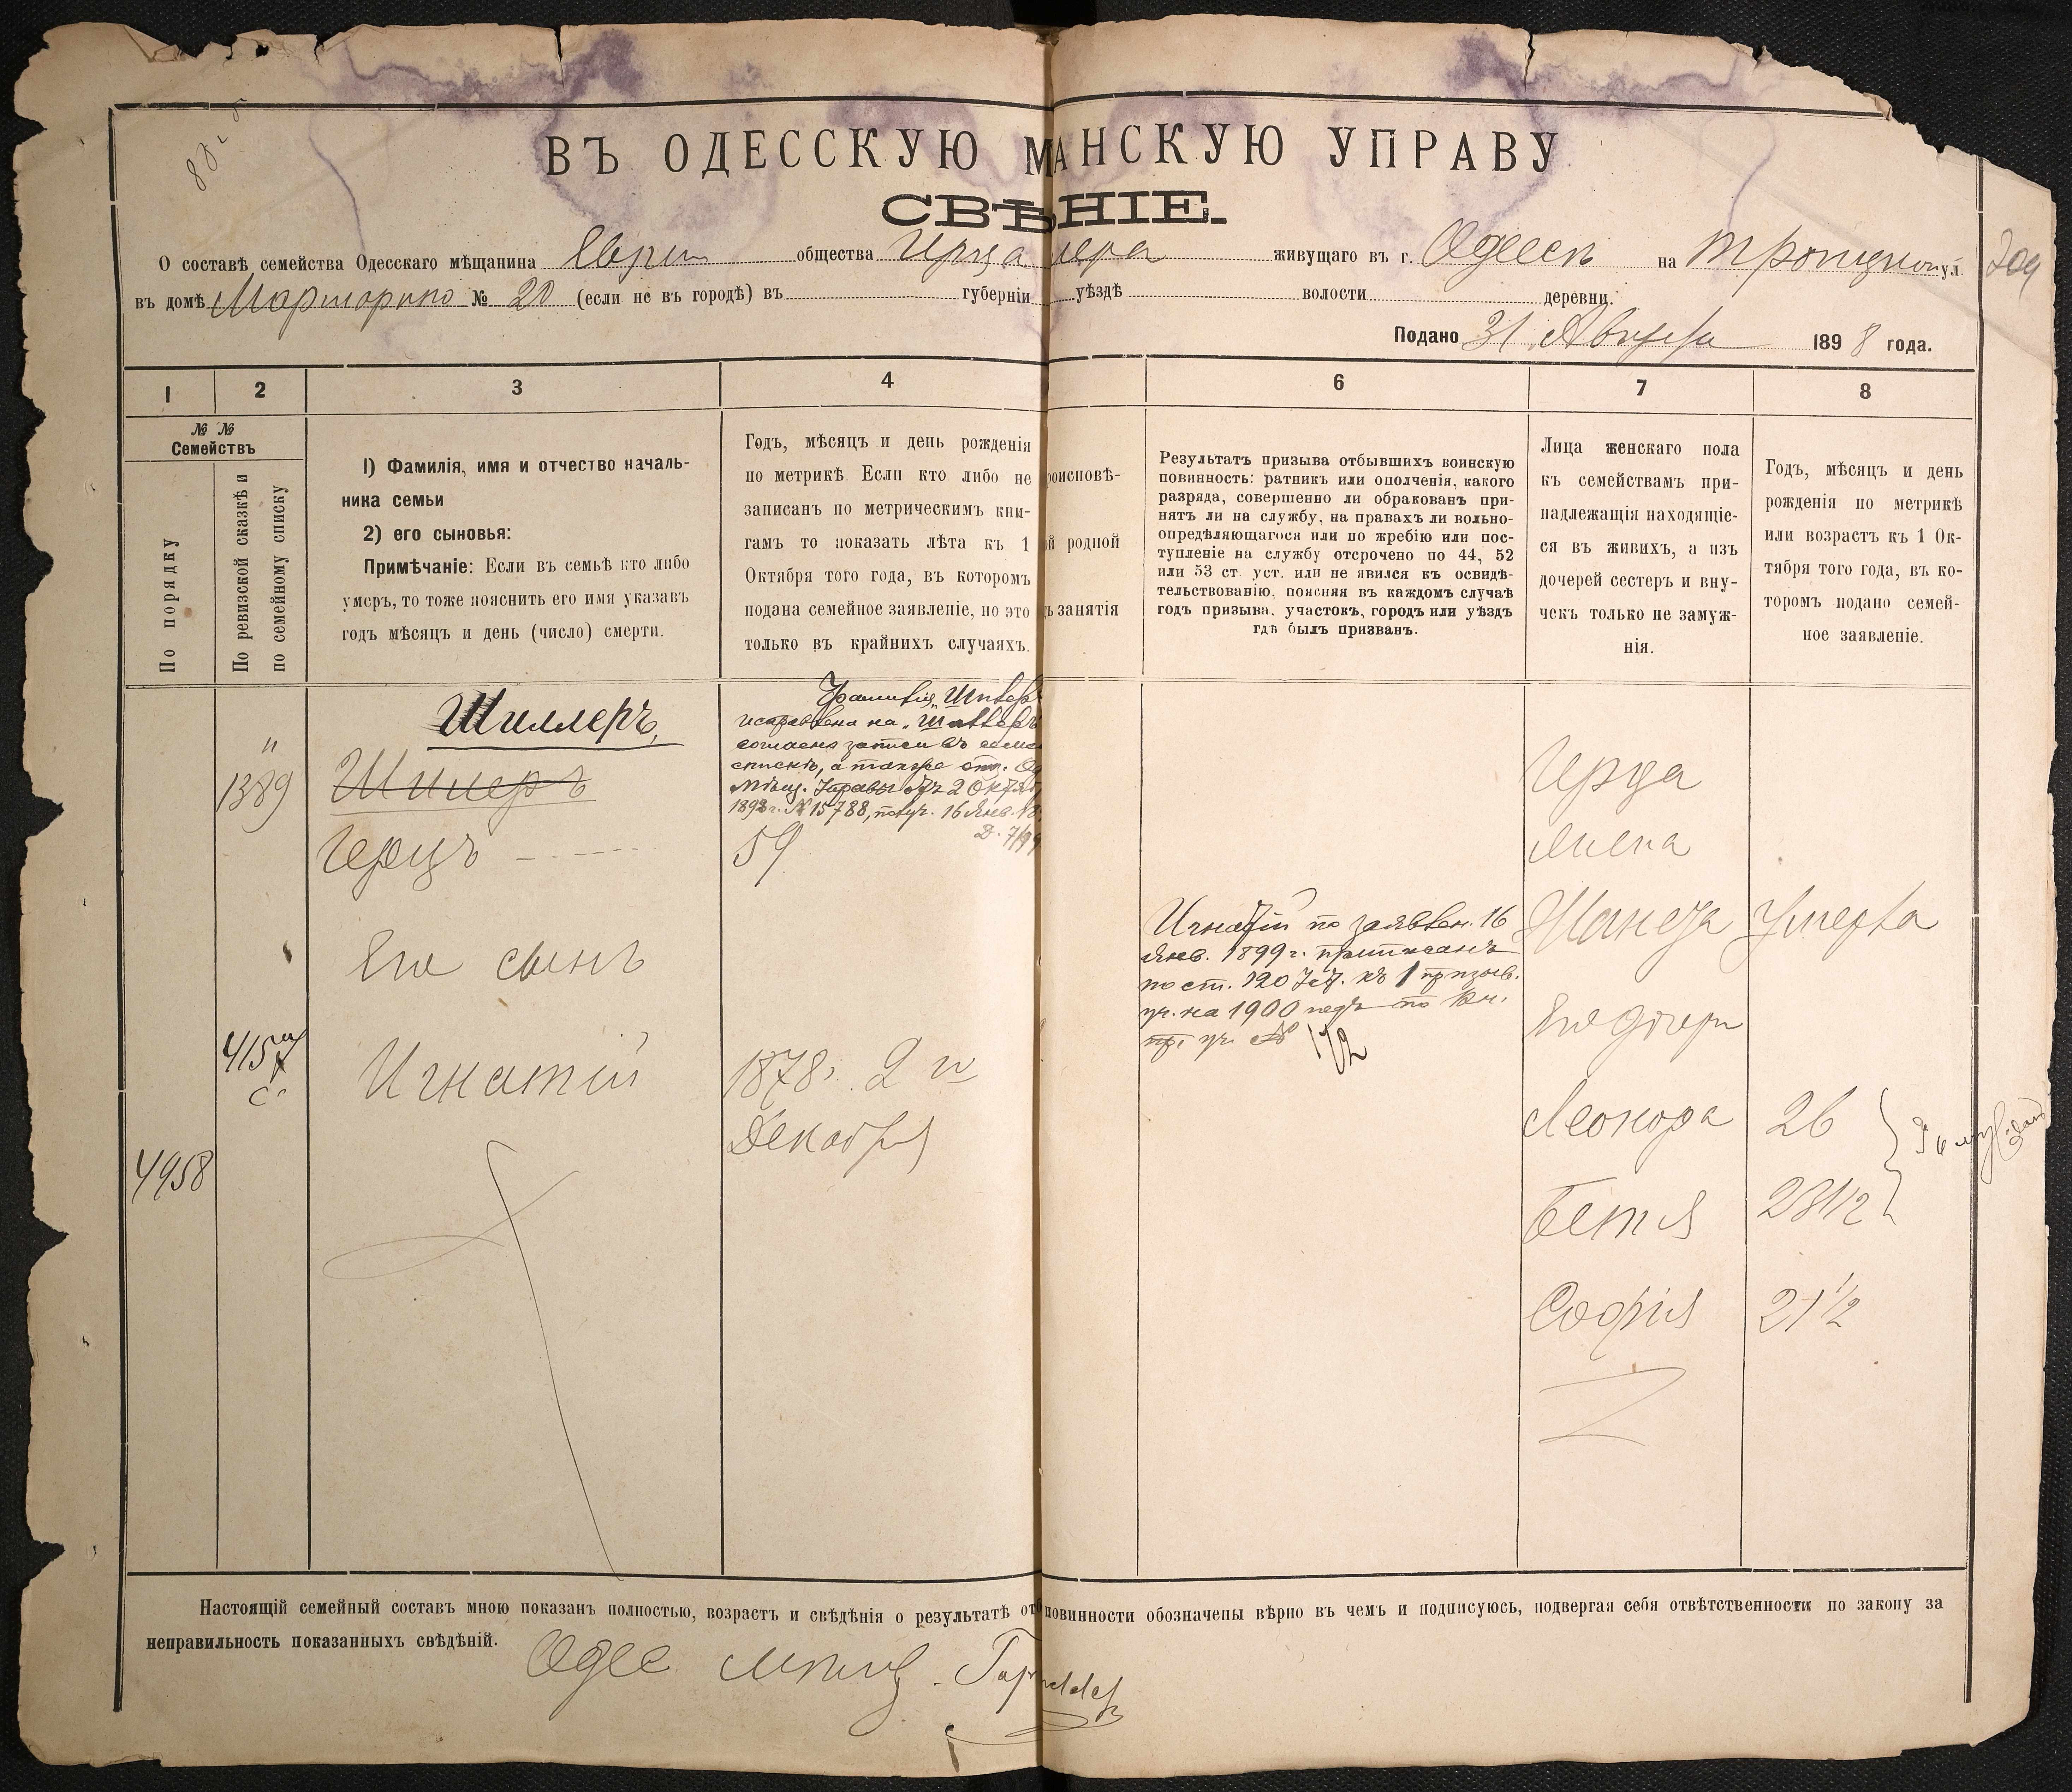 ВЪ ОДЕССКУЮ М АНСКУЮ УПРАВУ
СВѢ НІЕ.
О составѣ семейства Одесскаго мѣщанина Еврей общества Герца лера живущаго въ г. Одессѣ на Троицкой ул.
въ домѣ № 20 (если не въ городѣ) въ губерніи уѣздѣ волости деревни.
Подано 31 Августа 1898 года.
1 2 3 4 6 7 8
№ №
Семействъ
По порядку
По ревизской сказкѣ и
по семейному списку
1) Фамилія, имя и отчество началь-
ника семьи
2) его сыновья:
Примѣчаніе: Если въ семьѣ кто либо
умеръ, то тоже пояснить его имя указавъ
годъ мѣсяцъ и день (число) смерти.
Годъ, мѣсяцъ и день рожденія
по метрикѣ. Если кто либо не
записанъ по метрическимъ кни-
гамъ то показать лѣта къ 1
Октября того года, въ которомъ
подана семейное заявленіе, но это
только въ крайнихъ случаяхъ.
роисповѣ-
ой родной
ъ занятія
Результатъ призыва отбывшихъ воинскую
повинность: ратникъ или ополченія, какого
разряда, совершенно ли обракованъ при-
нятъ ли на службу, на правахъ ли вольно-
опредѣляющагося или по жребію или пос-
тупленіе на службу отсрочено по 44, 52
или 53 ст. уст. или не явился къ освидѣ-
тельствованію, поясняя въ каждомъ случаѣ
годъ призыва, участокъ, городъ или уѣздъ
гдѣ былъ призванъ.
Лица женскаго пола
къ семействамъ при-
надлежащія находящіе-
ся въ живихъ, а изъ
дочерей сестеръ и вну-
чекъ только не замуж-
нія.
Годъ, мѣсяцъ и день
рожденія по метрикѣ
или возрастъ къ 1 Ок-
тября того года, въ ко-
торомъ подано семей-
ное заявленіе.
Шиллеръ,
"
1389
Шилеръ
Герцъ
59
Фамилія „Шилеръ
исправлена на „Шиллеръ
согласно записи въ семе
спискѣ, а также отн. Од
Мѣщ. Управы отъ 2 Октяб
1898 г. № 15788, получ. 16 Янв. 18
Д. 7/99
Его сынъ
4157
с.
Игнатій
1878. 2 го
Декабря
4958
Игнатій по заявлен. 16
Янв. 1899 г. приписанъ
по ст. 120 Уст. къ 1 призыв.
уч. на 1900 годъ по
пр. уч. № 172
Герца
жена
Жанета Умерла
Его дочери
Леонора 26
Бетя 23 1/2
Софія 21 1/2
Настоящій семейный составъ мною показанъ полностью, возрастъ и свѣдѣнія о результатѣ от повинности обозначены вѣрно въ чемъ и подписуюсь, подвергая себя отвѣтственности по закону за
неправильность показанныхъ свѣдѣній.
Одес мѣщ.